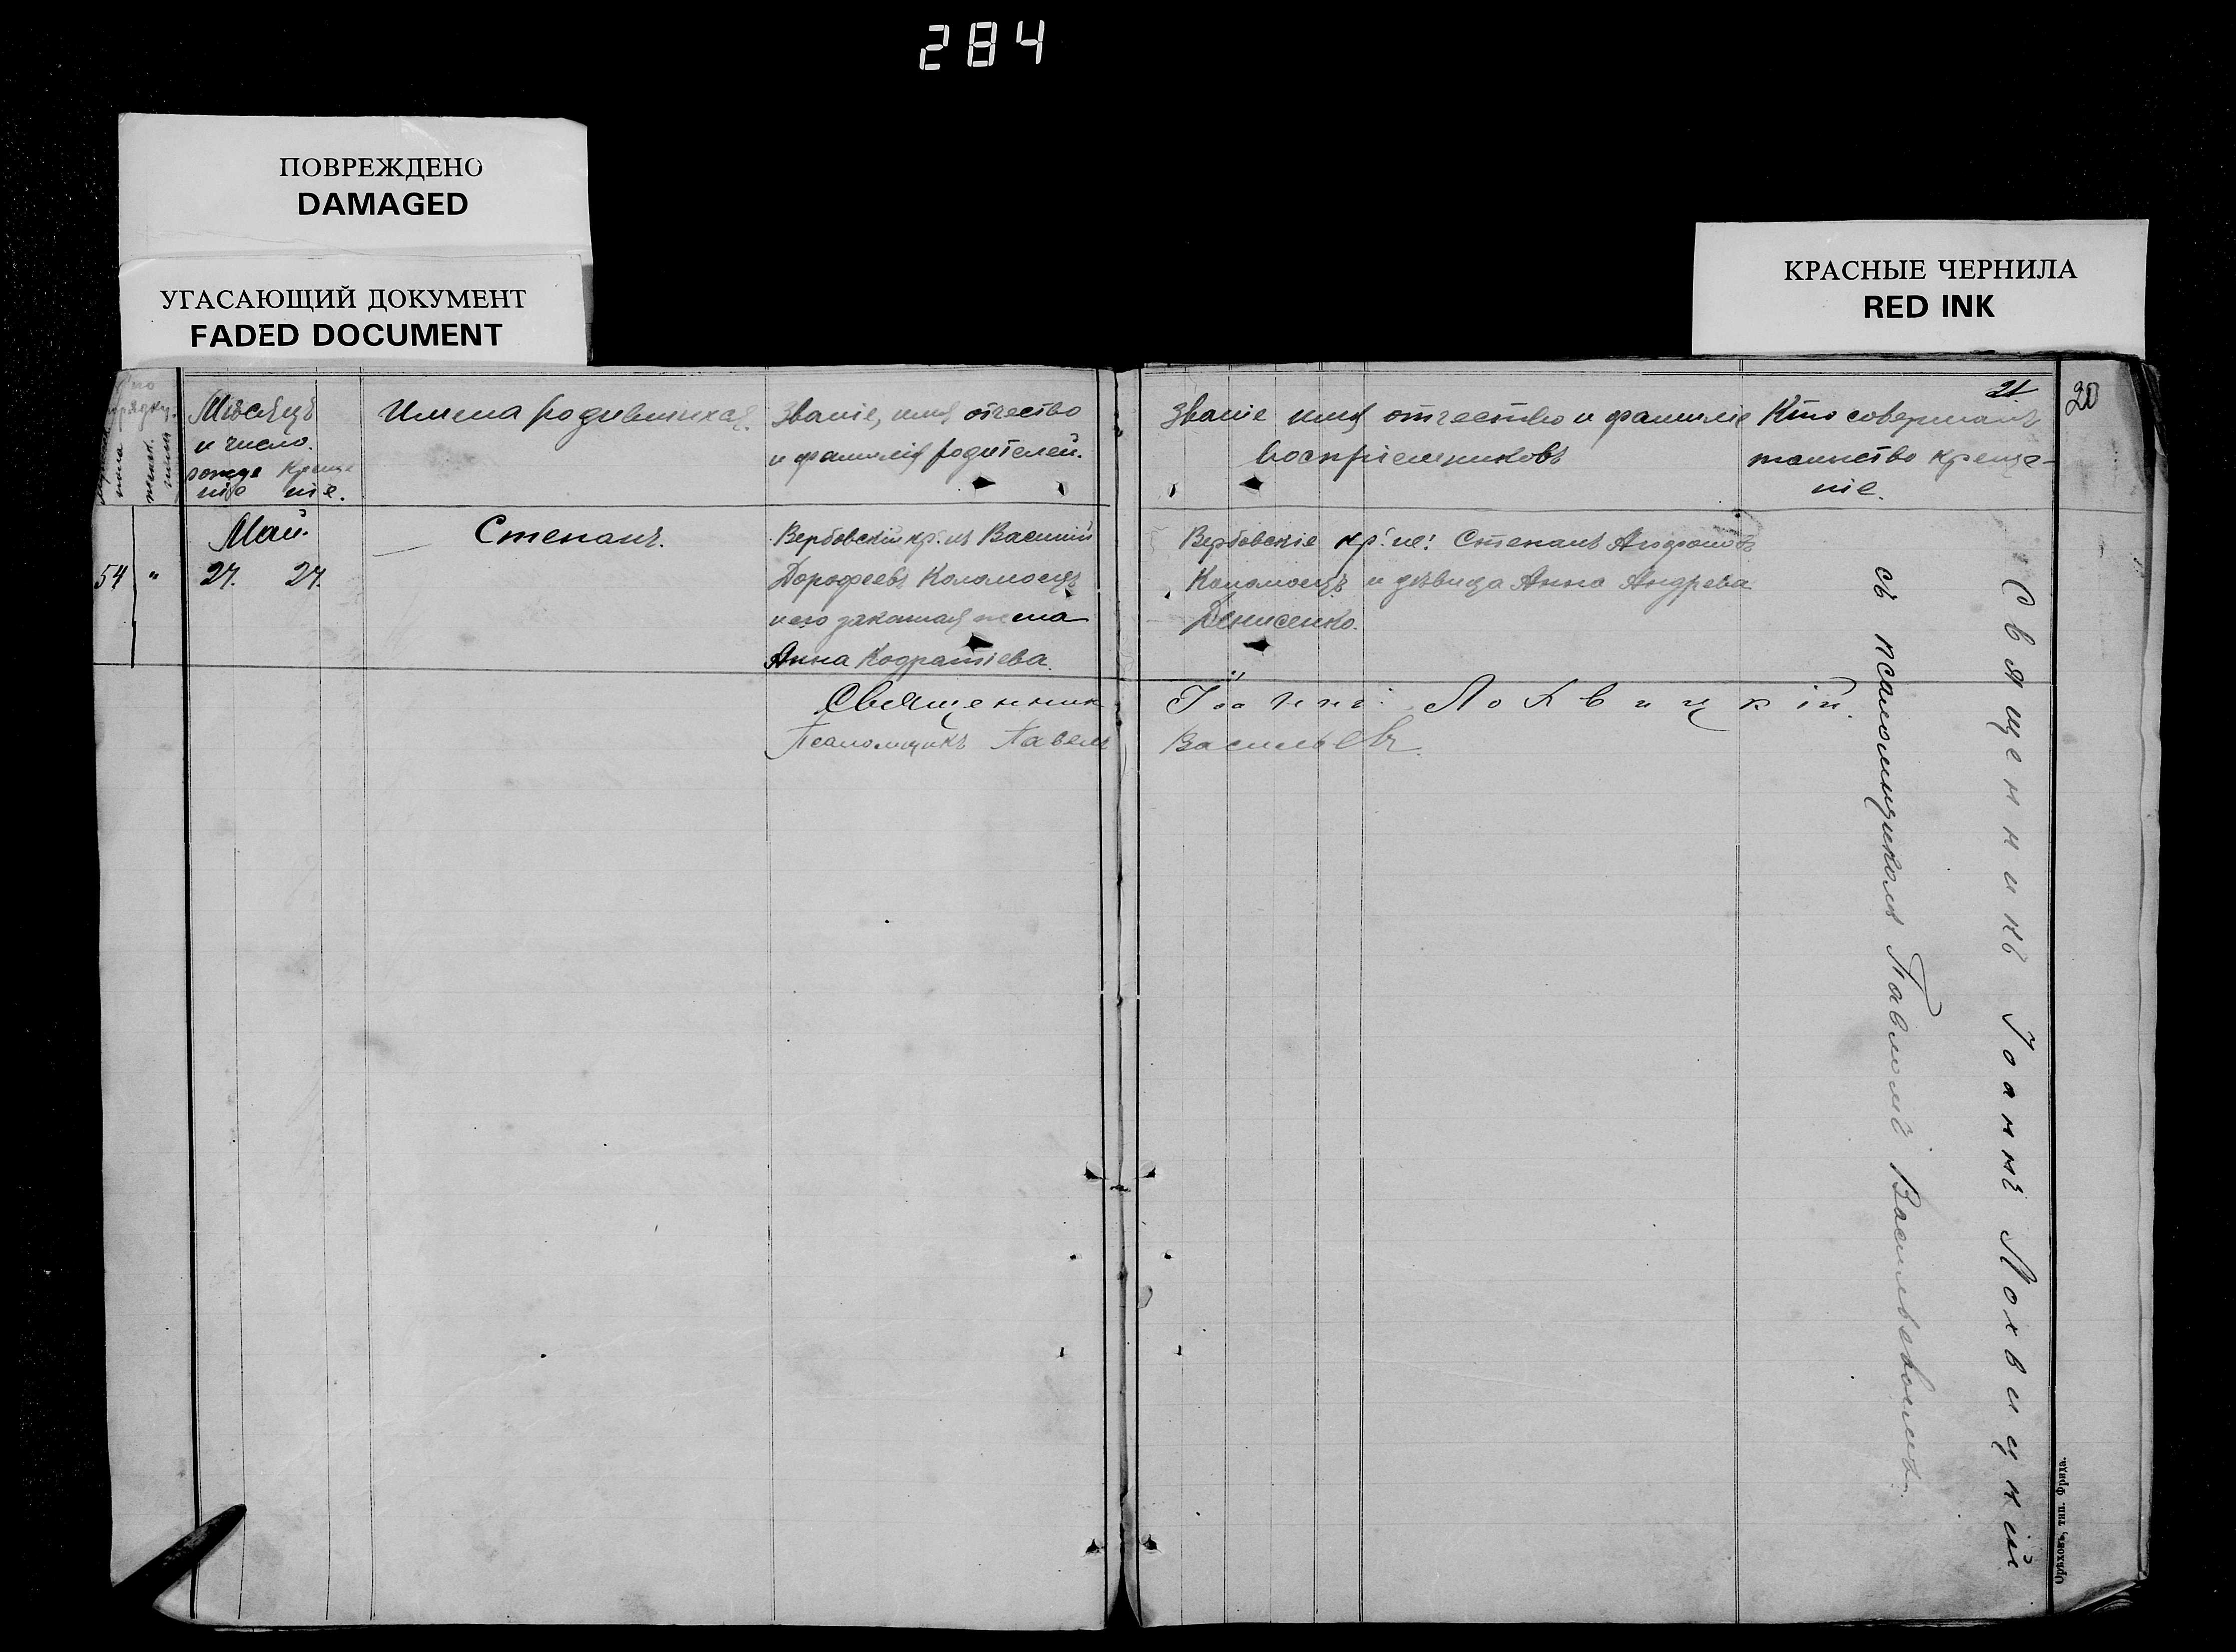 284
ПОВРЕЖДЕНО
DAMAGED
УГАСАЮЩИЙ ДОКУМЕНТ
FADED DOCUMENT
КРАСНЫЕ ЧЕРНИЛА
RED INK
21
20
Мѣсяцъ
и число.
рожде Креще
ніе ніе.
Имена родившихся.
Званіе, имя отчество
и фамилія родителей.
Званіе имя отчество и фамилie
воспріемниковъ
Кто совершалъ
таинство креще-
ніе.
54 "
Май.
27. 27.
Степанъ.
Вербовскій кр.нъ Василий
Дорофеевъ Коломоецъ
и его законная жена
Анна Кодратіева.
Вербовскіе кр.не: Степанъ
Коломоецъ и дѣвица Анна Андрева
Денисенко.
Священникъ Іоаннъ Лохвицкій
съ псаломщикомъ Павломъ Васильевымъ.
Священник Іоаннъ Лохвицкій.
Псаломщикъ Павелъ Васильевъ.
Орѣховъ, тип. Фрида.